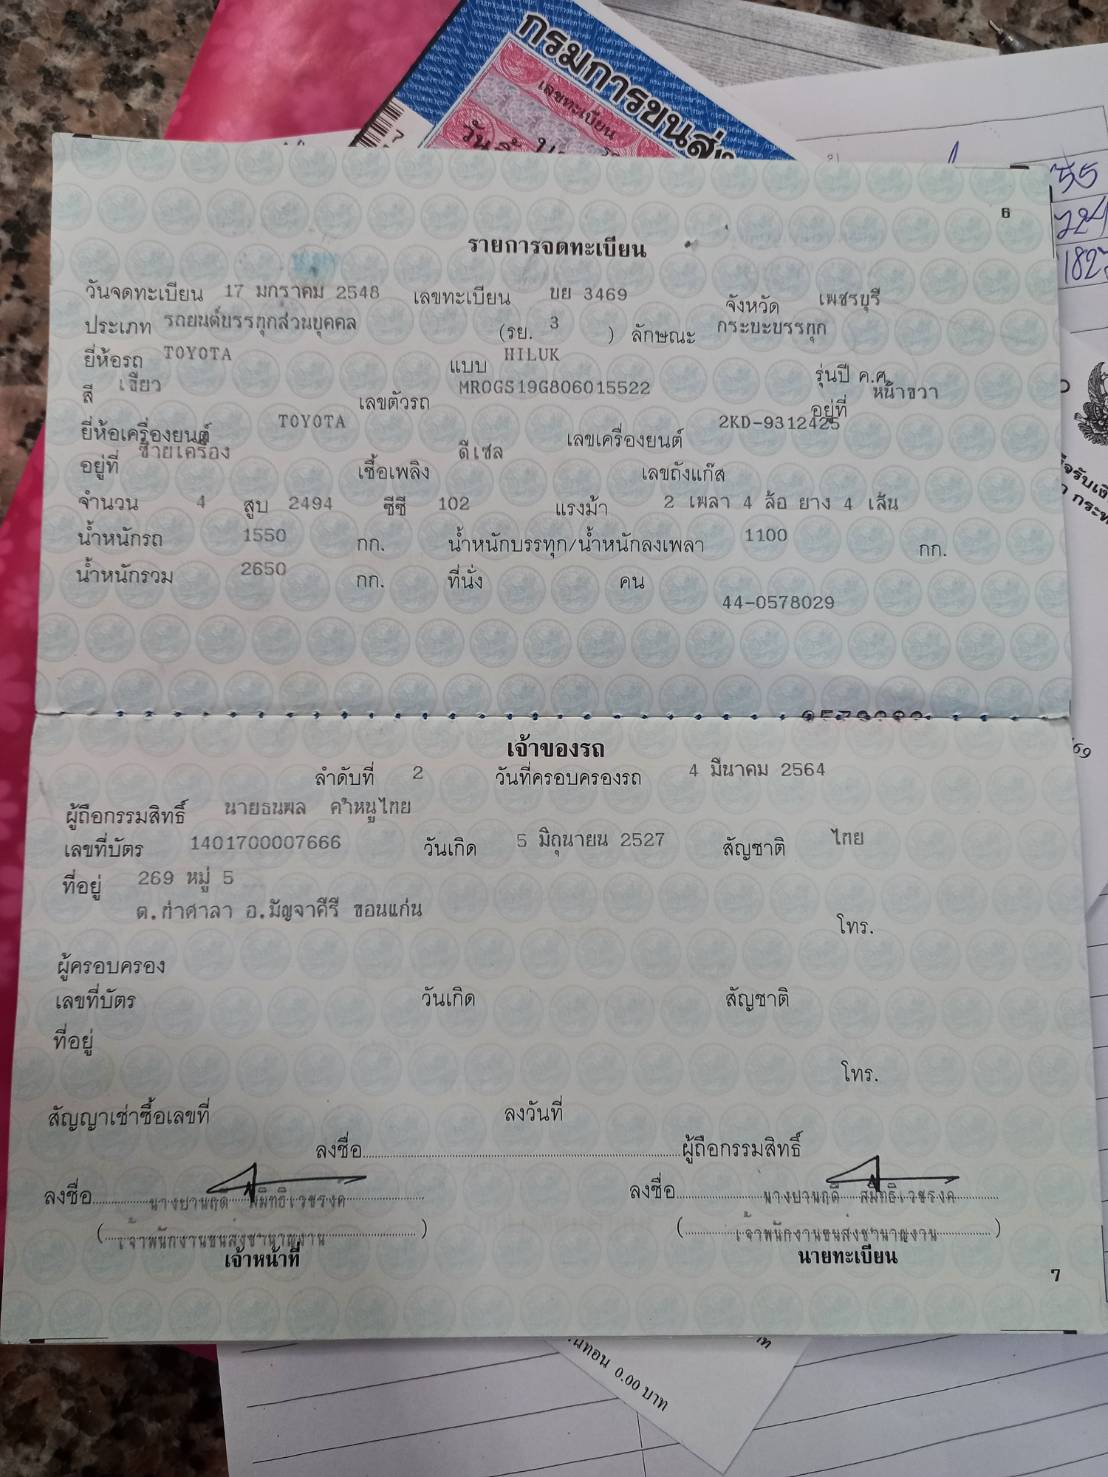 กรมการขนส่ง
เลขทะเบียน
6
รายการจดทะเบียน
วันจดทะเบียน 17 มกราคม 2548 เลขทะเบียน บย 3469 จังหวัด เพชรบุรี
ประเภท รถยนต์บรรทุกส่วนบุคคล (รย. 3 ) ลักษณะ กระบะบรรทุก
ยี่ห้อรถ TOYOTA แบบ HILUX รุ่นปี ค.ศ.
สี เขียว เลขตัวรถ MR0GS19G806015522 อยู่ที่ หน้าขวา
ยี่ห้อเครื่องยนต์ TOYOTA เลขเครื่องยนต์ 2KD-9312425
อยู่ที่ ซ้ายเครื่อง เชื้อเพลิง ดีเซล เลขถังแก๊ส
จำนวน 4 สูบ 2494 ซีซี 102 แรงม้า 2 เพลา 4 ล้อ ยาง 4 เส้น
น้ำหนักรถ 1550 กก. น้ำหนักบรรทุก/น้ำหนักลงเพลา 1100 กก.
น้ำหนักรวม 2650 กก. ที่นั่ง คน
44-0578029
เจ้าของรถ
ลำดับที่ 2 วันที่ครอบครองรถ 4 มีนาคม 2564
ผู้ถือกรรมสิทธิ์ นายธนพล คำหนูไทย
เลขที่บัตร 1401700007666 วันเกิด 5 มิถุนายน 2527 สัญชาติ ไทย
ที่อยู่ 269 หมู่ 5
ต.ท่าศาลา อ.มัญจาคีรี ขอนแก่น
โทร.
ผู้ครอบครอง
เลขที่บัตร วันเกิด สัญชาติ
ที่อยู่
โทร.
สัญญาเช่าซื้อเลขที่ ลงวันที่
ลงชื่อ ผู้ถือกรรมสิทธิ์
ลงชื่อ ลงชื่อ
(เจ้าพนักงานขนส่งชำนาญงาน) (เจ้าพนักงานขนส่งชำนาญงาน)
เจ้าหน้าที่ นายทะเบียน
7
0.00 บาท